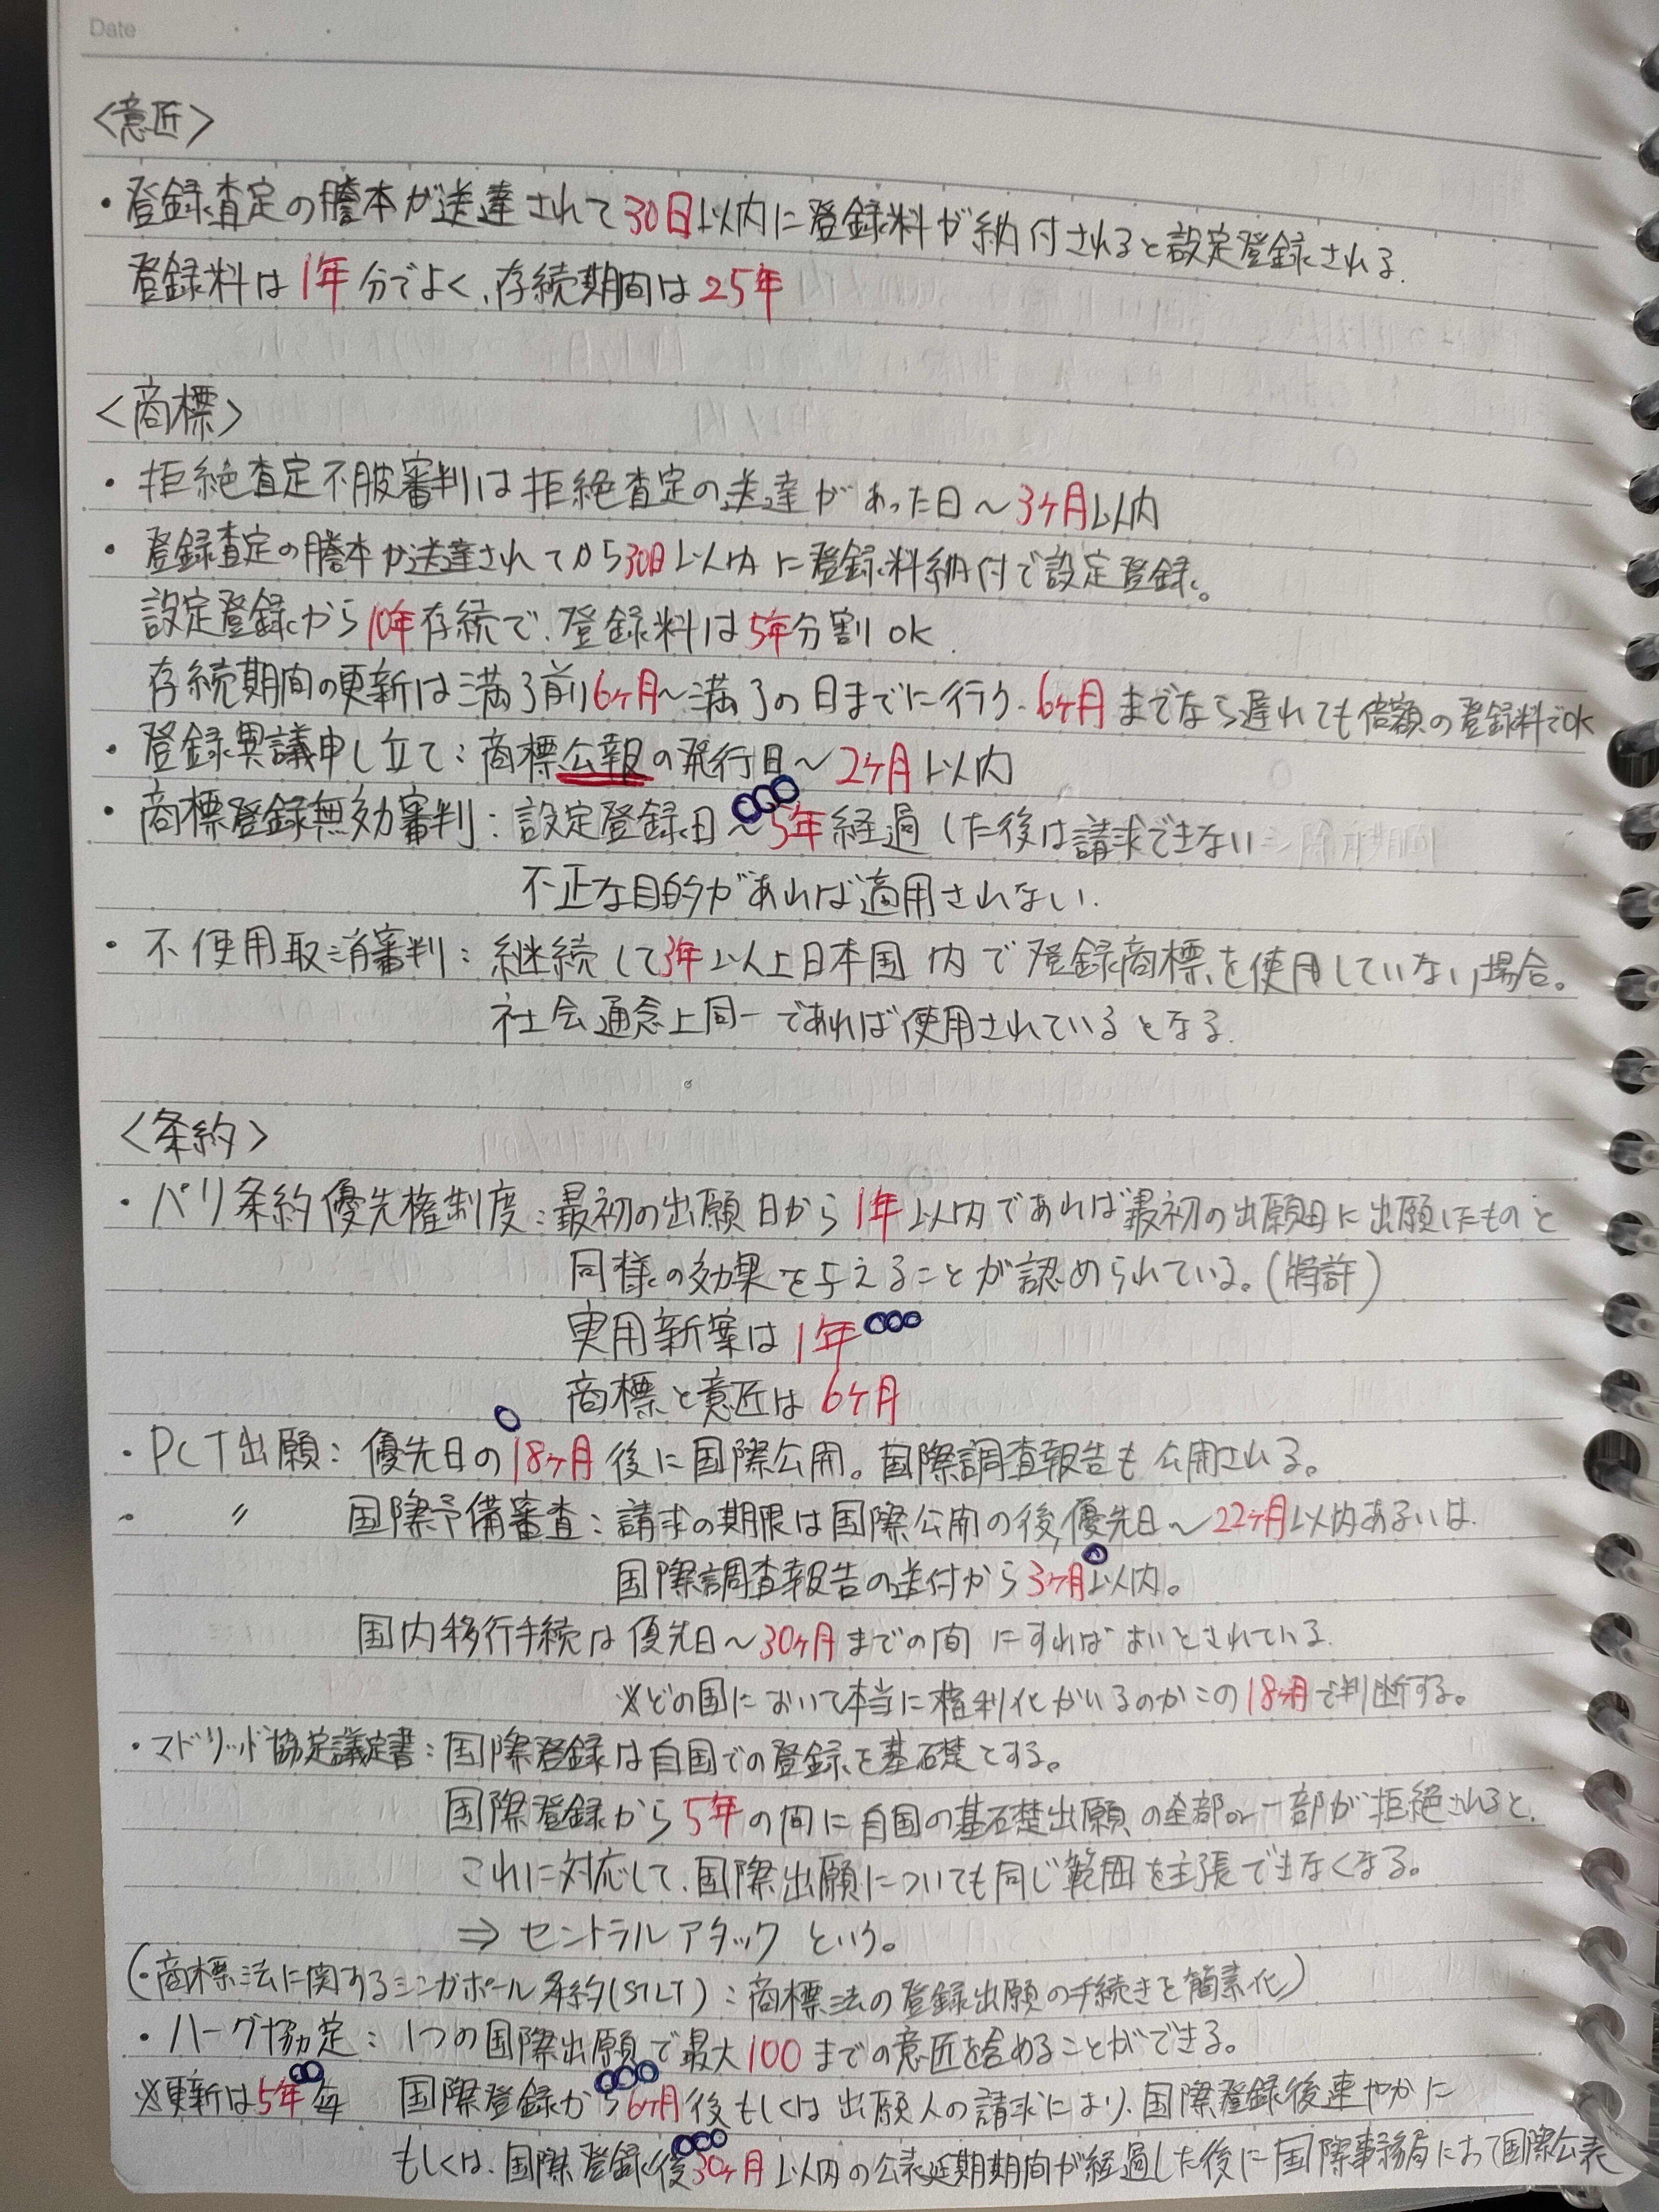 Date
<意匠>
・登録査定の謄本が送達されて30日以内に登録料が納付されると設定登録される.
登録料は1年分でよく、存続期間は25年
<商標>
・拒絶査定不服審判は拒絶査定の送達があった日〜3ヶ月以内
・登録査定の謄本が送達されてから30日以内に登録料納付で設定登録。
設定登録から10年存続で、登録料は5年分割OK.
存続期間の更新は満了前6ヶ月〜満了の日までに行う.6ヶ月までなら遅れても倍額の登録料でOK
・登録異議申し立て:商標公報の発行日〜2ヶ月以内
・商標登録無効審判:設定登録日〜5年経過した後は請求できない
不正な目的があれば適用されない.
・不使用取消審判:継続して3年以上日本国内で登録商標を使用していない場合。
社会通念上同一であれば使用されているとなる.
<条約>
・パリ条約優先権制度:最初の出願日から1年以内であれば最初の出願日に出願したものと
同様の効果を与えることが認められている。(特許)
実用新案は1年
商標と意匠は6ヶ月
・PCT出願:優先日の18ヶ月後に国際公開。国際調査報告も公開される。
・〃 国際予備審査:請求の期限は国際公開の後,優先日〜22ヶ月以内あるいは.
国際調査報告の送付から3ヶ月以内。
国内移行手続は優先日〜30ヶ月までの間にすればよいとされている.
※どの国において本当に権利化がいるのかこの18ヶ月で判断する。
・マドリッド協定議定書:国際登録は自国での登録を基礎とする。
国際登録から5年の間に自国の基礎出願の全部or一部が拒絶されると、
これに対応して、国際出願についても同じ範囲を主張できなくなる。
⇒ セントラルアタックという。
(・商標法に関するシンガポール条約(STLT):商標法の登録出願の手続きを簡素化)
・ハーグ協定:1つの国際出願で最大100までの意匠を含めることができる。
※更新は5年毎 国際登録から6ヶ月後もしくは出願人の請求により、国際登録後速やかに
もしくは、国際登録後30ヶ月以内の公表延期期間が経過した後に国際事務局において国際公表